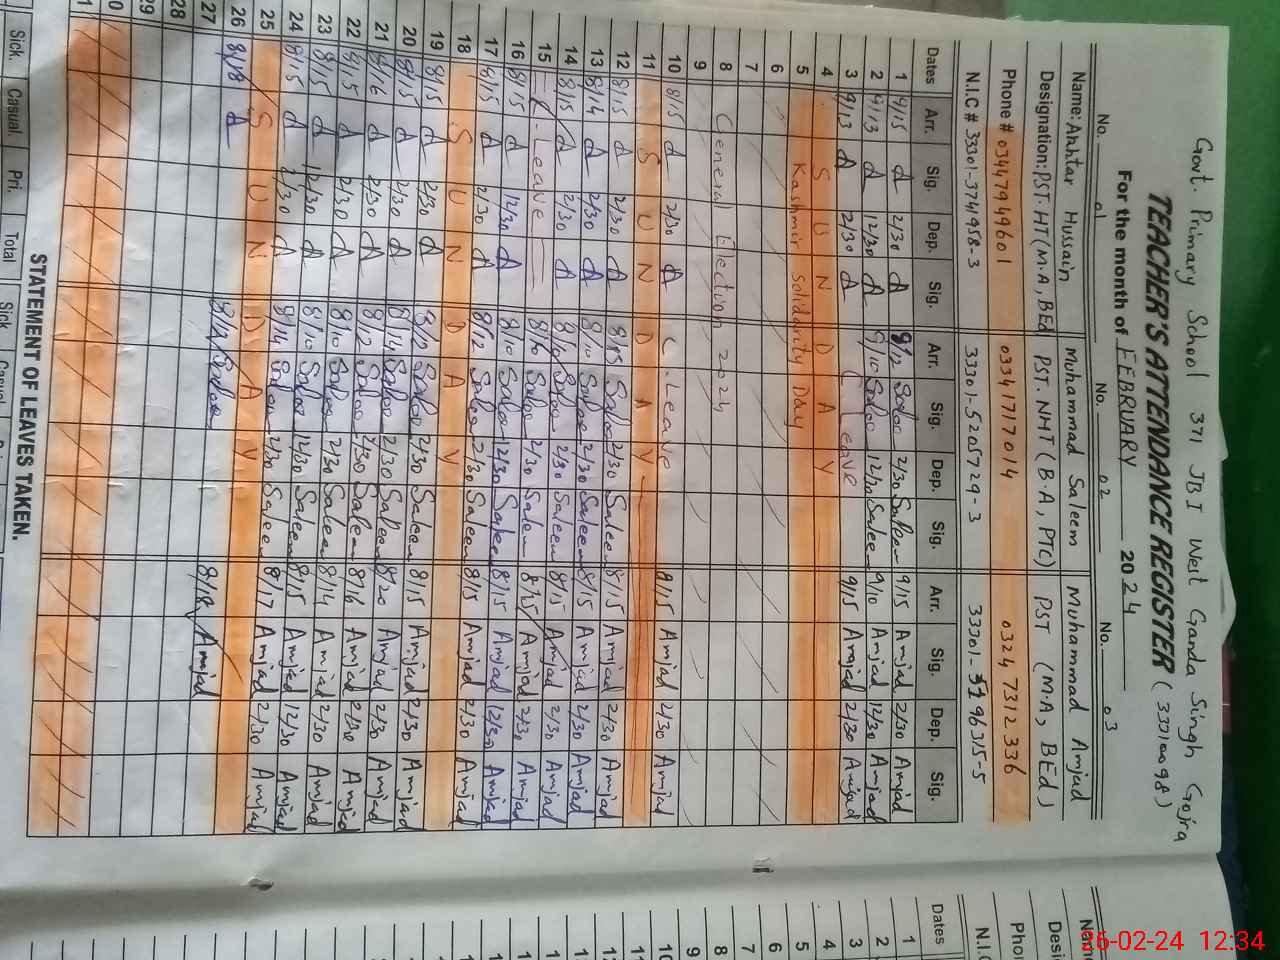 Govt. Primary School 371 JBI West Ganda Singh Gojra
TEACHER'S ATTENDANCE REGISTER (33310098)
For the month of FEBRUARY 2024
No. 01 No. 02 No. 03
Name: Akhtar Hussain Muhammad Saleem Muhammad Amjad
Designation: PST-HT (M.A, BEd PST. NHT (B.A, PTC) PST (M.A, BEd)
Phone # 03447949601 03341717014 0324 7312336
N.I.C # 33301-3741958-3 33301-5205729-3
Dates Arr. Sig. Dep. Sig. Arr. Sig. Dep. Sig. Arr. Sig. Dep. Sig.
1 9/15 2/30 8/12 2/30 Saleem 9/15 Amjad 2/30 Amjad
2 9/13 12/30 9/10 12/30 Saleem 9/10 Amjad 12/30 Amjad
3 9/13 2/30 C. Leave 9/15 Amjad 2/30 Amjad
4 SUNDAY
5 Kashmir solidarity Day
6
7
8 General Election 2024
9
10 8/15 2/30 C. Leave 8/15 Amjad 2/30 Amjad
11 SUNDAY
12 8/15 2/30 8/15 2/30 Saleem 8/15 Amjad 2/30 Amjad
13 8/14 2/30 8/10 2/30 Saleem 8/15 Amjad 2/30 Amjad
14 8/15 2/30 8/10 2/30 Saleem 8/15 Amjad 2/30 Amjad
15 C. Leave 8/10 2/30 Saleem Amjad 2/30 Amjad
16 8/15 12/30 8/10 12/30 Saleem 8/15 Amjad 12/30 Amjad
17 8/15 2/30 8/12 2/30 Saleem 8/15 Amjad 2/30 Amjad
18 SUNDAY
19 8/15 2/30 8/12 2/30 Saleem 8/15 Amjad 2/30 Amjad
20 8/15 2/30 8/14 2/30 Saleem 8/20 Amjad 2/30 Amjad
21 8/16 2/30 8/12 2/30 Saleem 8/16 Amjad 2/30 Amjad
22 8/15 2/30 8/10 2/30 Saleem 8/14 Amjad 2/30 Amjad
23 8/15 12/30 8/10 12/30 Saleem 8/15 Amjad 12/30 Amjad
24 8/15 2/30 8/14 2/30 Saleem 8/17 Amjad 2/30 Amjad
25 SUNDAY
26 8/18 8/14 8/18 Amjad
27
28
29
STATEMENT OF LEAVES TAKEN.
Sick. Casual. Pri. Total Sick
Dates
1
2
3
4
5
6
7
8
9
10
26-02-24 12:34